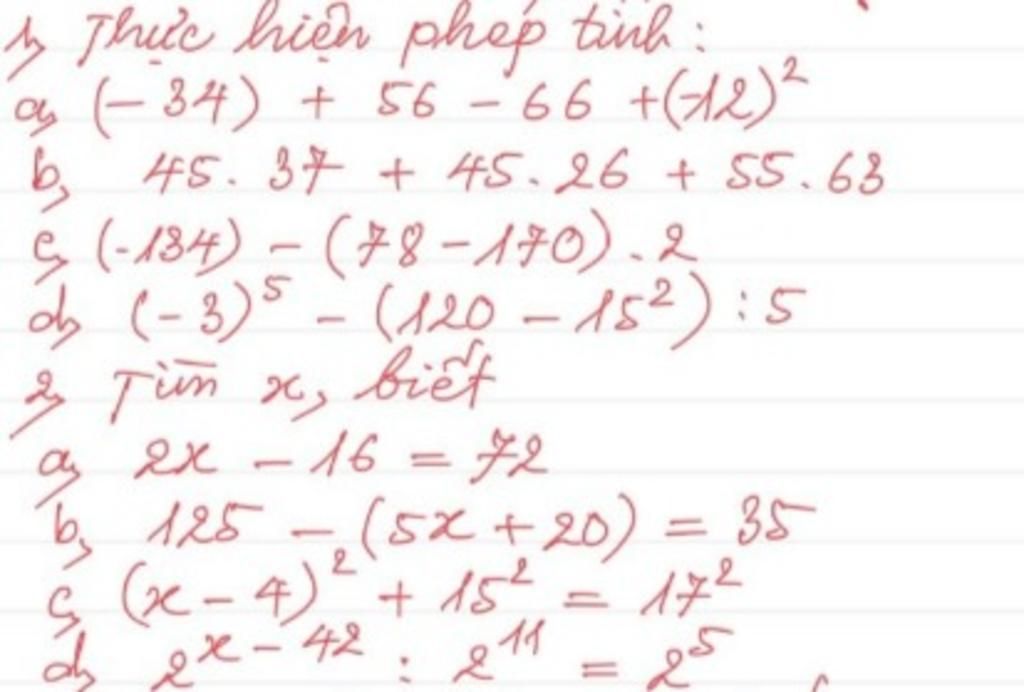 1, Thực hiện phép tính:
a, (-34) + 56 - 66 + (-12)²
b, 45. 37 + 45. 26 + 55. 63
c, (-134) - (78 - 170) . 2
d, (-3)⁵ - (120 - 15²) : 5
2, Tìm x, biết
a, 2x - 16 = 72
b, 125 - (5x + 20) = 35
c, (x - 4)² + 15² = 17²
d, 2ˣ⁻⁴² : 2¹¹ = 2⁵